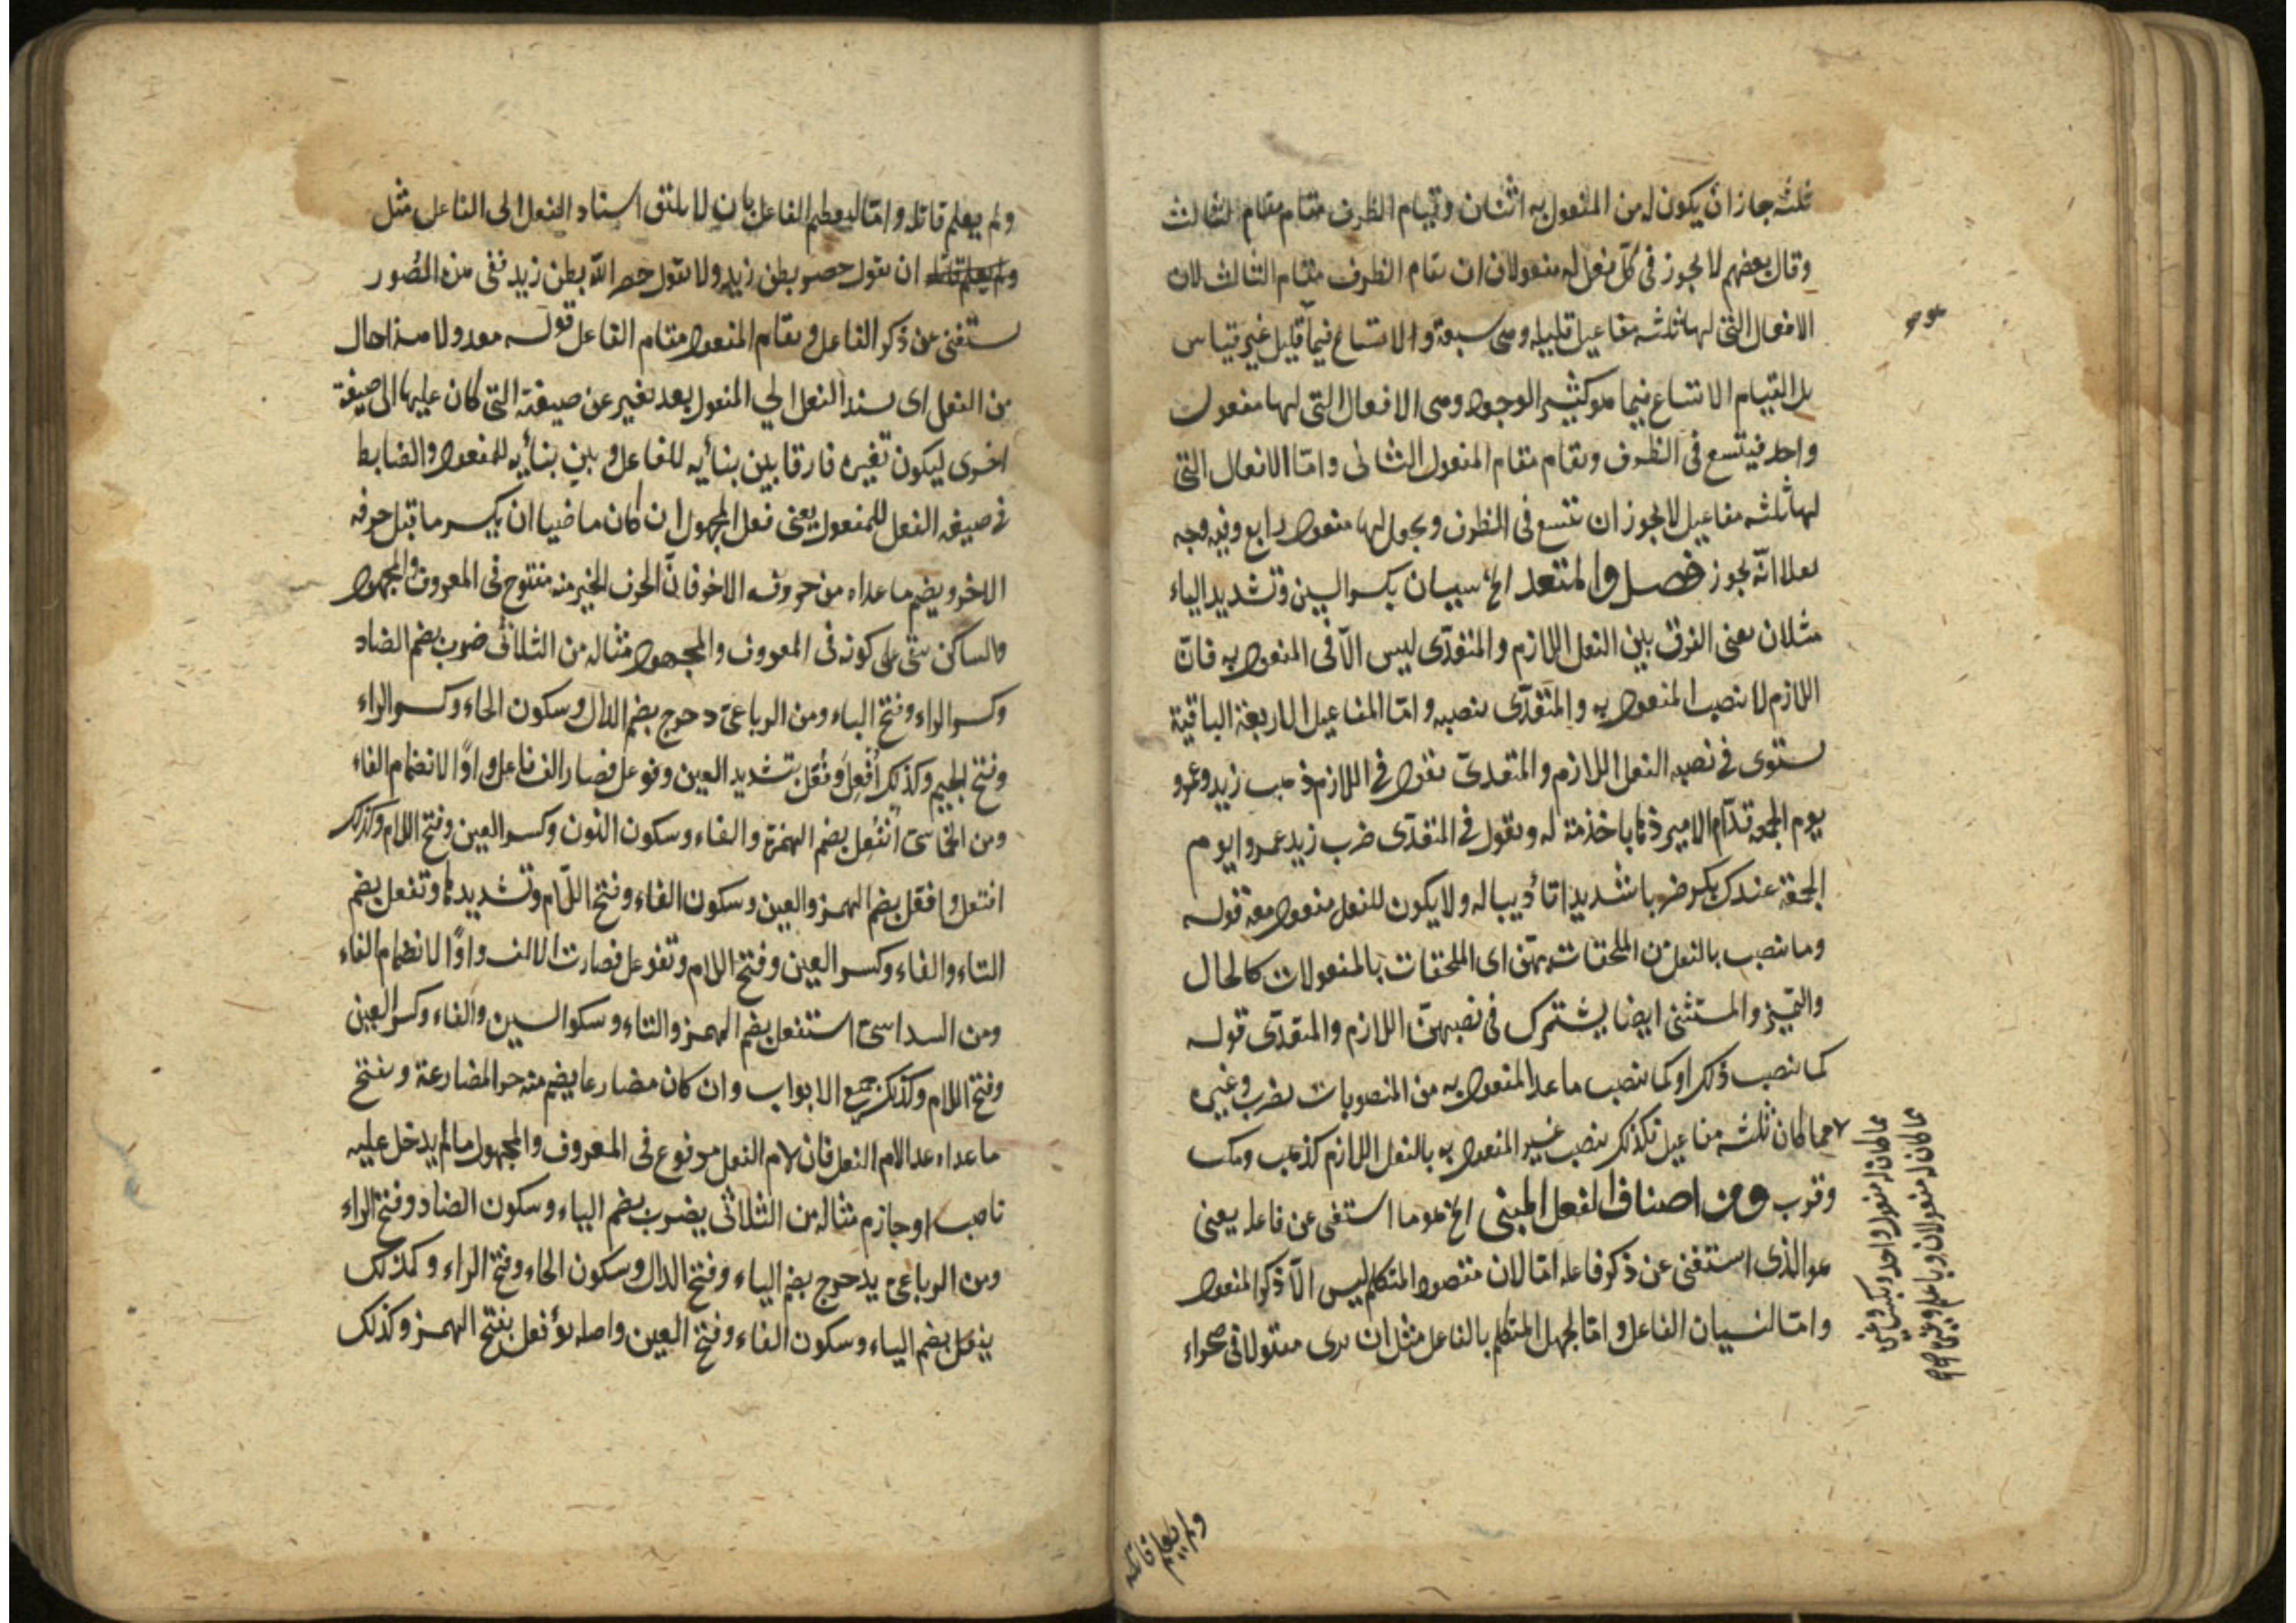 ثلثه جاز ان يكون له من المفعول به اثنان وقيام الظرف مقام مقام الثالث
وقال بعضهم لا يجوز فى كل فعل له مفعولان ان يقام الظرف مقام الثالث لان
الافعال التى لها ثلثه مفاعيل قليله وهى سبعة والاتساع فيما قليل غير قياس
بل القيام الاتساع فيما هو كثير الوجود وهى الافعال التى لها مفعول
واحد فيتسع فى الظرف ويقام مقام المفعول الثانى واما الافعال التى
لها ثلثه مفاعيل لا يجوز ان يتسع فى الظرف ويجعل لها مفعول رابع وفيه وجه
انه يجوز فصل والمتعد الخ سيان بكسر السين وتشديد الياء
مثلان يعنى الفرق بين الفعل اللازم والمتعدى ليس الا فى المفعول به فان
اللازم لا ينصب المفعول به والمتعدى ينصبه واما المفاعيل الاربعة الباقية
يستوى فى نصبه الفعل اللازم والمتعدى تقول فى اللازم ذهب زيد وعمرو
يوم الجمعة قدام الامير ذهابا خذمة له وتقول فى المتعدى ضرب زيد عمروا يوم
الجمعة عندك بكر ضربا شديدا تأديبا له ولا يكون للفعل مفعول معه قوله
وما ينصب بالفعل من الملحقات بهن اى الملحقات بالمفعولات كالحال
والتميز والمستثنى ايضا يشترك فى نصبهن اللازم والمتعدى قوله
كما نصب ذلك او كما ينصب ما عدا المفعول به من المنصوبات بضرب وغيره
مما كان ثلثه مفاعيل فكذلك ينصب غير المفعول به بالفعل اللازم كذهب ومكث
وقرب ومن اصناف الفعل المبنى الخ هو ما استغنى عن فاعله يعنى
هو الذى استغنى عن ذكر فاعله اما لان مقصود المتكلم ليس الا ذكر المفعول
واما لنسيان الفاعل واما لجهل المتكلم بالفاعل مثل ان يرى مقتولا فى صحراء
مما كان له مفعول واحد
مما كان له مفعولان
ولم يعلم قاتله
ولم يعلم قاتله واما لتعظيم الفاعل بان لا يليق اسناد الفعل الى الفاعل مثل
ولم يعلم قاتله ان تقول حصر بطن زيد ولا تقول حصر الله بطن زيد ففى هذه الصور
يستغنى عن ذكر الفاعل ويقام المفعول مقام الفاعل قوله معدولا هذا حال
من الفعل اى يسند الفعل الى المفعول بعد تغير عن صيغته التى كان عليها الى صيغة
اخرى ليكون تغيره فارقا بين بنائه للفاعل وبين بنائه للمفعول والضابط
فى صيغه الفعل للمفعول يعنى فعل المجهول ان كان ماضيا ان يكسر ما قبل حرفه
الاخر ويضم ما عداه من حروفه الاخر فان الحرف الاخير منه مفتوح فى المعروف والمجهول
والساكن بقى على كونه فى المعروف والمجهول مثاله من الثلاثى ضرب بضم الضاد
وكسر الراء وفتح الباء ومن الرباعى دحرج بضم الدال وسكون الحاء وكسر الراء
وفتح الجيم وكذلك أفعل وفعل بتشديد العين وفوعل فصار الف فاعل واوا لانضمام الفاء
ومن الخماسى انفعل بضم الهمزة والفاء وسكون النون وكسر العين وفتح اللام وكذلك
افتعل وافعل بضم الهمز والعين وسكون الفاء وفتح اللام وتشديدها وتفعل بضم
التاء والفاء وكسر العين وفتح اللام وتفوعل فصارت الالف واوا لانضمام الفاء
ومن السداسى استفعل بضم الهمز والتاء وسكو السين والفاء وكسر العين
وفتح اللام وكذلك جميع الابواب وان كان مضارعا يضم منه حر المضارعة ويفتح
ما عداه عدا لام الفعل فان لام الفعل مرفوع فى المعروف والمجهول ما لم يدخل عليه
ناصب او جازم مثاله من الثلاثى يضرب بضم الياء وسكون الضاد وفتح الراء
ومن الرباعى يدحرج بضم الياء وفتح الدال وسكون الحاء وفتح الراء وكذلك
يفعل بضم الياء وسكون الفاء وفتح العين واصله يؤفعل بفتح الهمز وكذلك